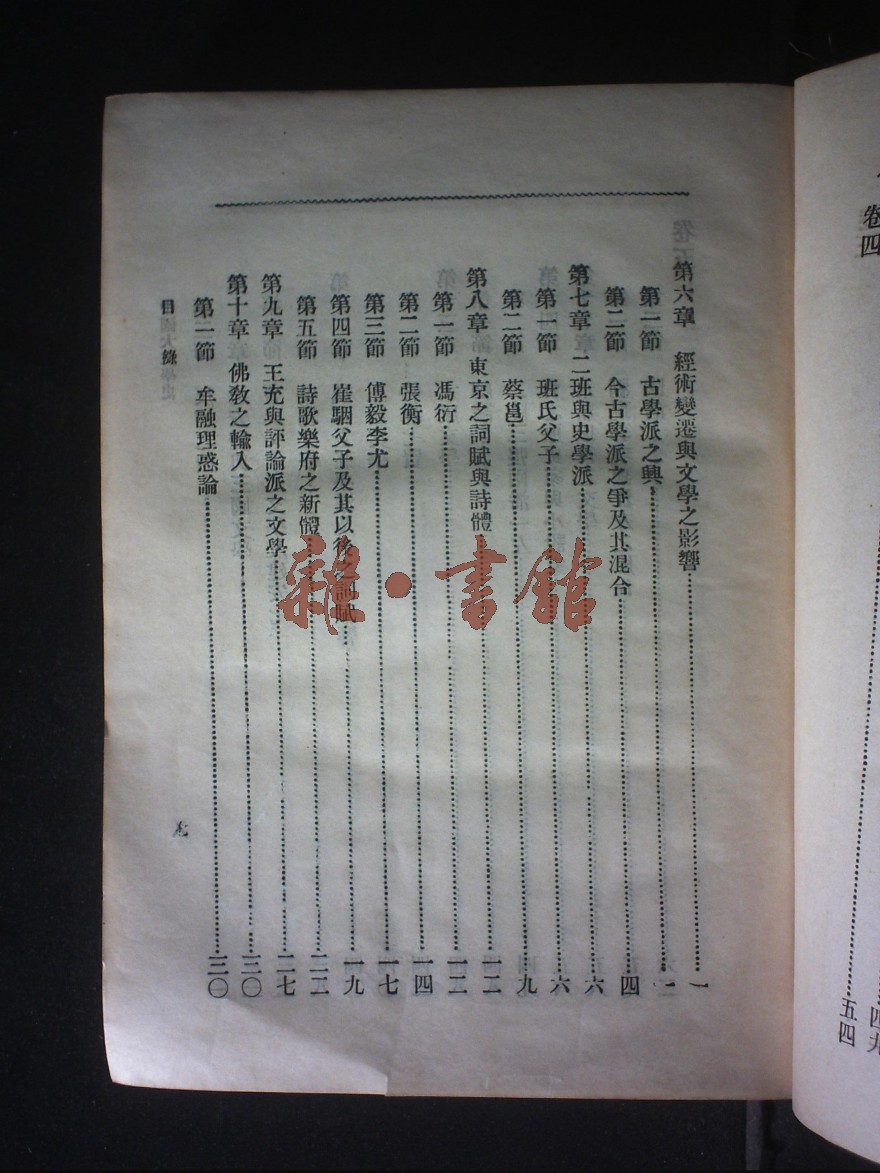 卷四
四九
五四
第六章 經術變遷與文學之影響 一
第一節 古學派之興 一
第二節 今古學派之爭及其混合 四
第七章 二班與史學派 六
第一節 班氏父子 六
第二節 蔡邕 九
第八章 東京之詞賦與詩體 一二
第一節 馮衍 一二
第二節 張衡 一四
第三節 傅毅李尤 一七
第四節 崔駰父子及其以後之詞賦 一九
第五節 詩歌樂府之新體 二二
第九章 王充與評論派之文學 二七
第十章 佛教之輸入 三〇
第一節 牟融理惑論 三〇
目錄
七
雜·書館